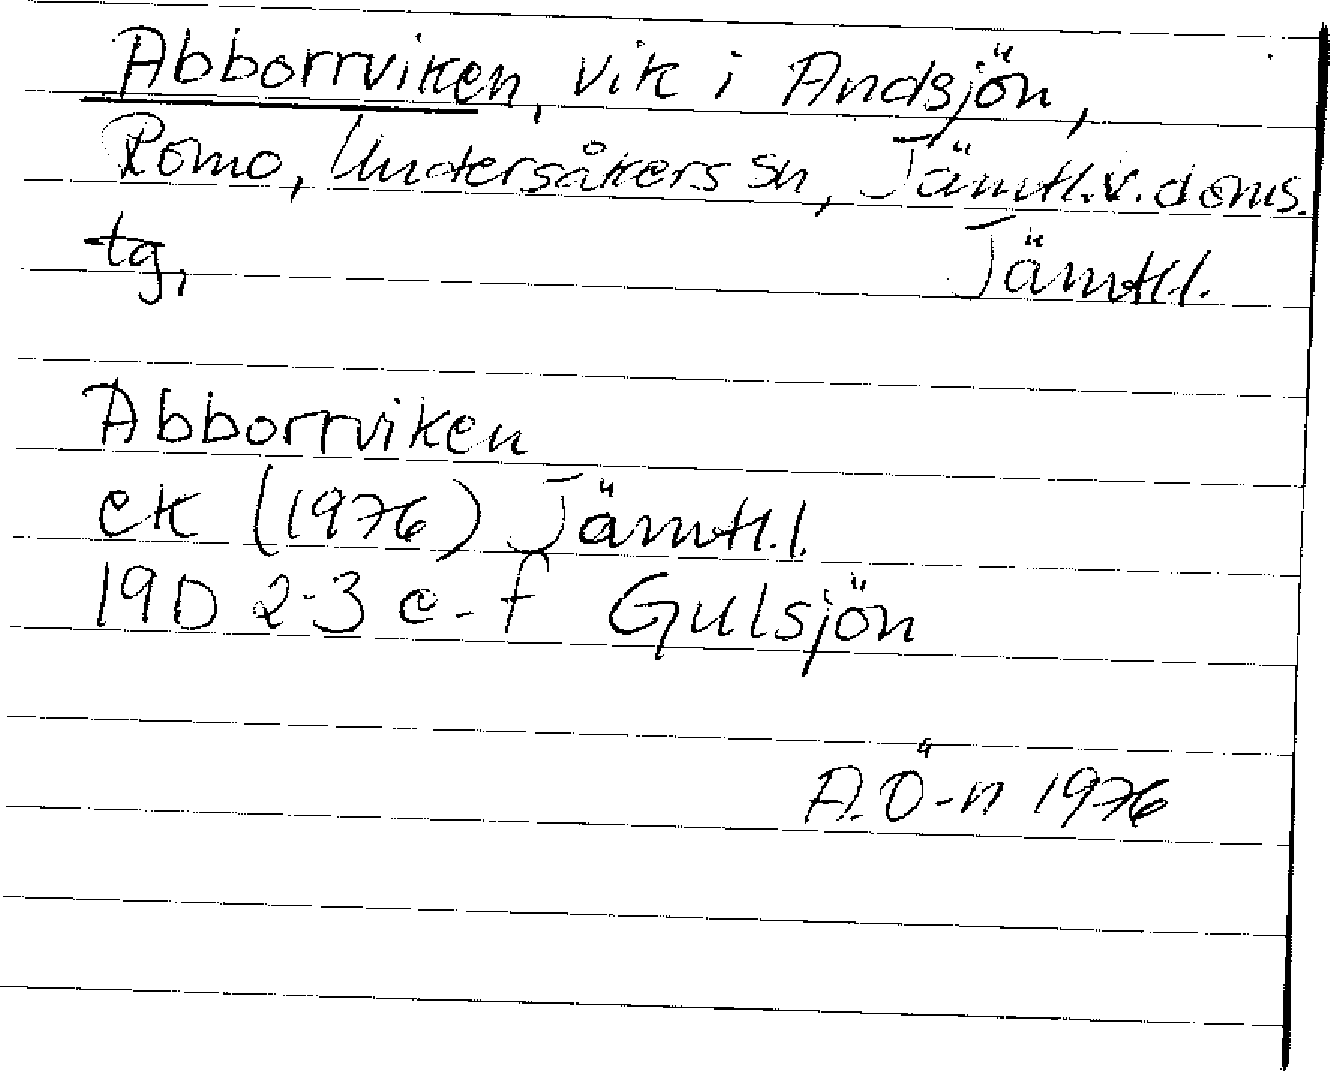 Abborrviken, vik i Andsjön,
Romo, Undersåkers sn, Jämtl.v.doms.
tg, Jämtl.l.
Abborrviken
ek (1976) Jämtl.l.
19D 2-3 e-f Gulsjön
A.Ö-n 1976